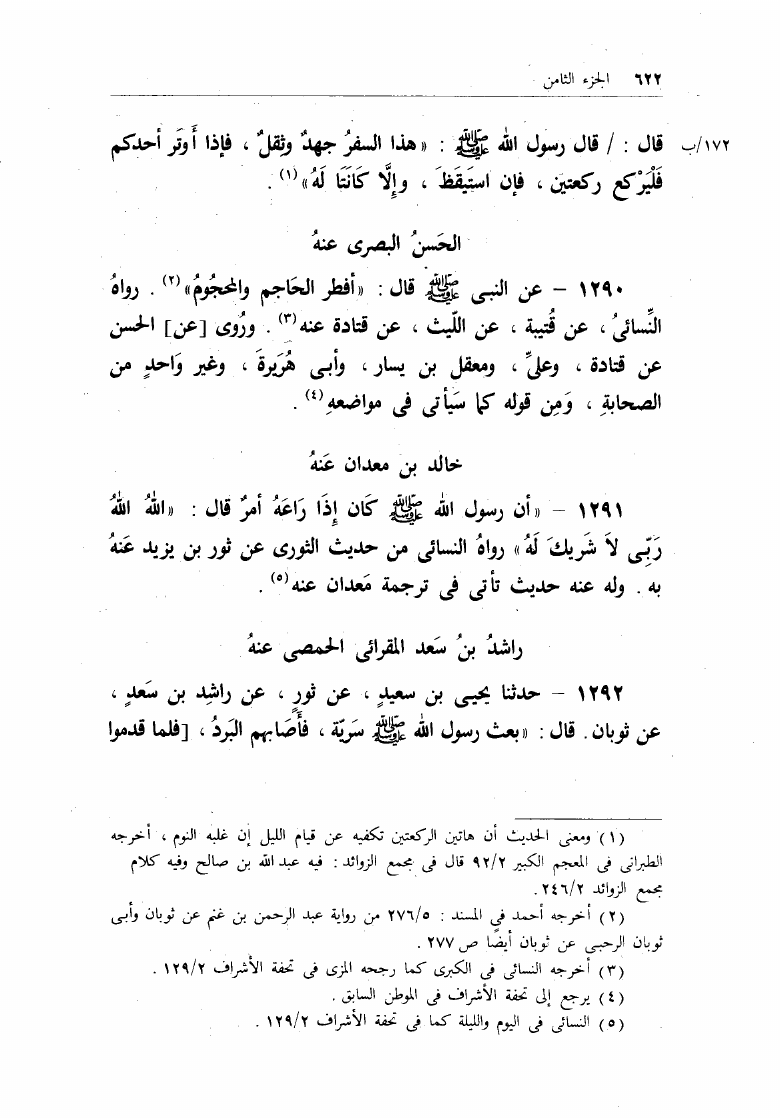 ٦٢٢ الجزء الثامن
قال : / قال رسول الله ﷺ : «هذا السفرُ جهدٌ وثِقلٌ ، فإذا أَوتَر أحدكم ١٧٢/ب
فَلْيَرْكع ركعتين ، فإن استَيقَظَ ، وإلَّا كَانَتَا لَهُ»(١) .
الحَسنُ البصرى عنهُ
١٢٩٠ – عن النبى ﷺ قال : «أفطر الحَاجم والمحجُومُ»(٢) . رواهُ
النِّسائىُ ، عن قُتيبة ، عن اللّيث ، عن قتادة عنه(٣) . ورُوى [عن] الحسن
عن قتادة ، وعلىِّ ، ومعقل بن يسار ، وأبى هُرَيرةَ ، وغير وَاحدٍ من
الصحابةِ ، وَمِن قوله كما سَيأتى فى مواضعهِ(٤) .
خالد بن معدان عَنهُ
١٢٩١ – «أن رسول الله ﷺ كَان إِذَا رَاعَهُ أمرٌ قال : «اللهُ اللهُ
رَبِّى لاَ شَريكَ لَهُ» رواهُ النسائى من حديث الثورى عن ثور بن يزيد عَنهُ
به . وله عنه حديث تأتى فى ترجمة مَعدان عنه(٥) .
راشدُ بنُ سَعد المقرائى الحمصى عنهُ
١٢٩٢ – حدثنا يحيى بن سعيدٍ ، عن ثورٍ ، عن راشِد بن سَعدٍ ،
عن ثوبان . قال : «بعث رسول الله ﷺ سَريّة ، فأَصَابهم البَردُ ، [فلما قدموا
(١) ومعنى الحديث أن هاتين الركعتين تكفيه عن قيام الليل إن غلبه النوم ، أخرجه
الطبرانى فى المعجم الكبير ٩٢/٢ قال فى مجمع الزوائد : فيه عبد الله بن صالح وفيه كلام
مجمع الزوائد ٢٤٦/٢ .
(٢) أخرجه أحمد فى المسند : ٢٧٦/٥ من رواية عبد الرحمن بن غنم عن ثوبان وأبى
ثوبان الرحبى عن ثوبان أيضًا ص ٢٧٧ .
(٣) أخرجه النسائى فى الكبرى كما رجحه المزى فى تحفة الأشراف ١٢٩/٢ .
(٤) يرجع إلى تحفة الأشراف فى الموطن السابق .
(٥) النسائى فى اليوم والليلة كما فى تحفة الأشراف ١٢٩/٢ .